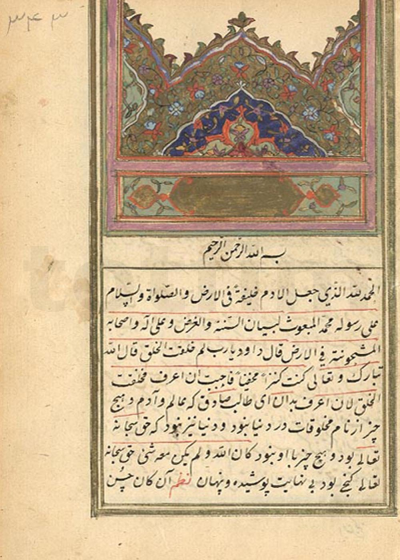 ۳۴۳
بسم الله الرحمن الرحیم
الحمد لله الذی جعل الادم خلیفة فی الارض والصلواة والسلام
علی رسوله محمد المبعوث لبیان السنة والفرض وعلی آله واصحابه
المشحونة فی الارض قال داود یارب لم خلقت الخلق قال الله
تبارک وتعالی کنت کنزا مخفیا فاحببت ان اعرف فخلقت
الخلق لان اعرف بدان ای طالب صادق که عالم و آدم و هیچ
چیز از نام مخلوقات در دنیا نبود و دنیا نیز نبود که حق سبحانه
تعالی بود و هیچ چیز با او نبود کان الله و لم یکن معه شئ حق سبحانه
تعالی گنجی بود بی نهایت پوشیده و پنهان نظم آن کان حسن